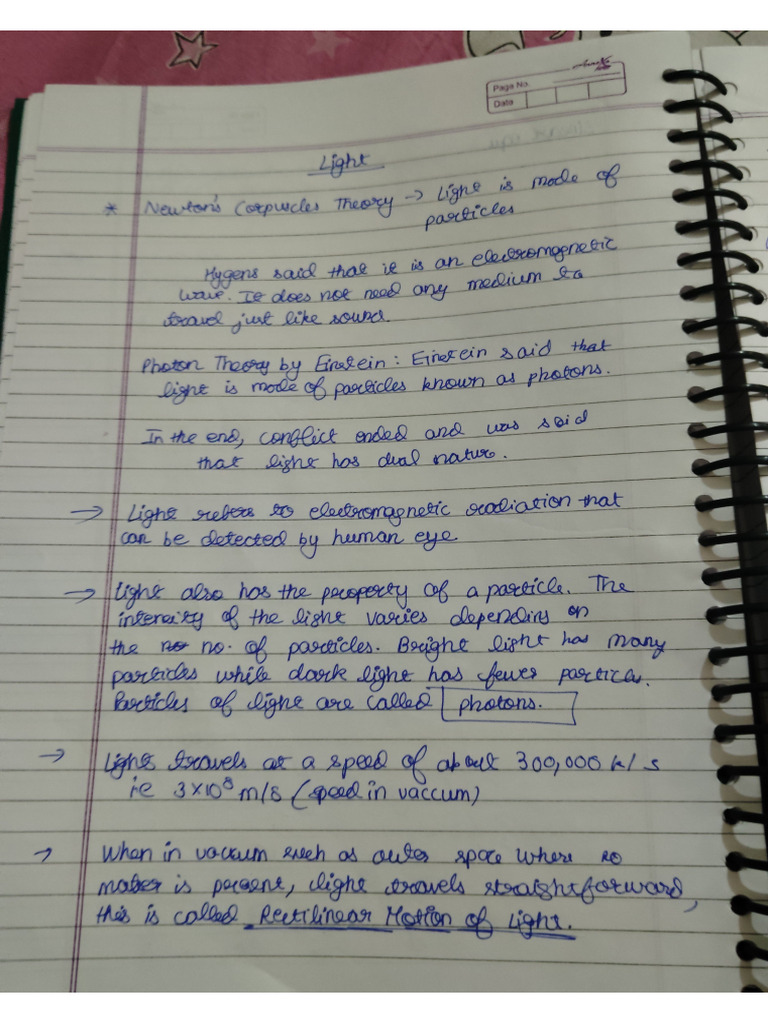 Page No.
Date
Light
* Newton's Corpuscles Theory → Light is made of
particles
Hygens said that it is an electromagnetic
wave. It does not need any medium to
travel just like sound.
Photon Theory by Einstein: Einstein said that
light is made of particles known as photons.
In the end, conflict ended and was said
that light has dual nature.
→ Light refers to electromagnetic radiation that
can be detected by human eye.
→ Light also has the property of a particle. The
intensity of the light varies depending on
the no. of particles. Bright light has many
particles while dark light has fewer particles.
Particles of light are called photons.
→ Light travels at a speed of about 300,000 k/s
ie 3×10⁸ m/s (speed in vaccum)
→ When in vaccum such as outer space where no
matter is present, light travels straightforward,
this is called Rectilinear Motion of Light.